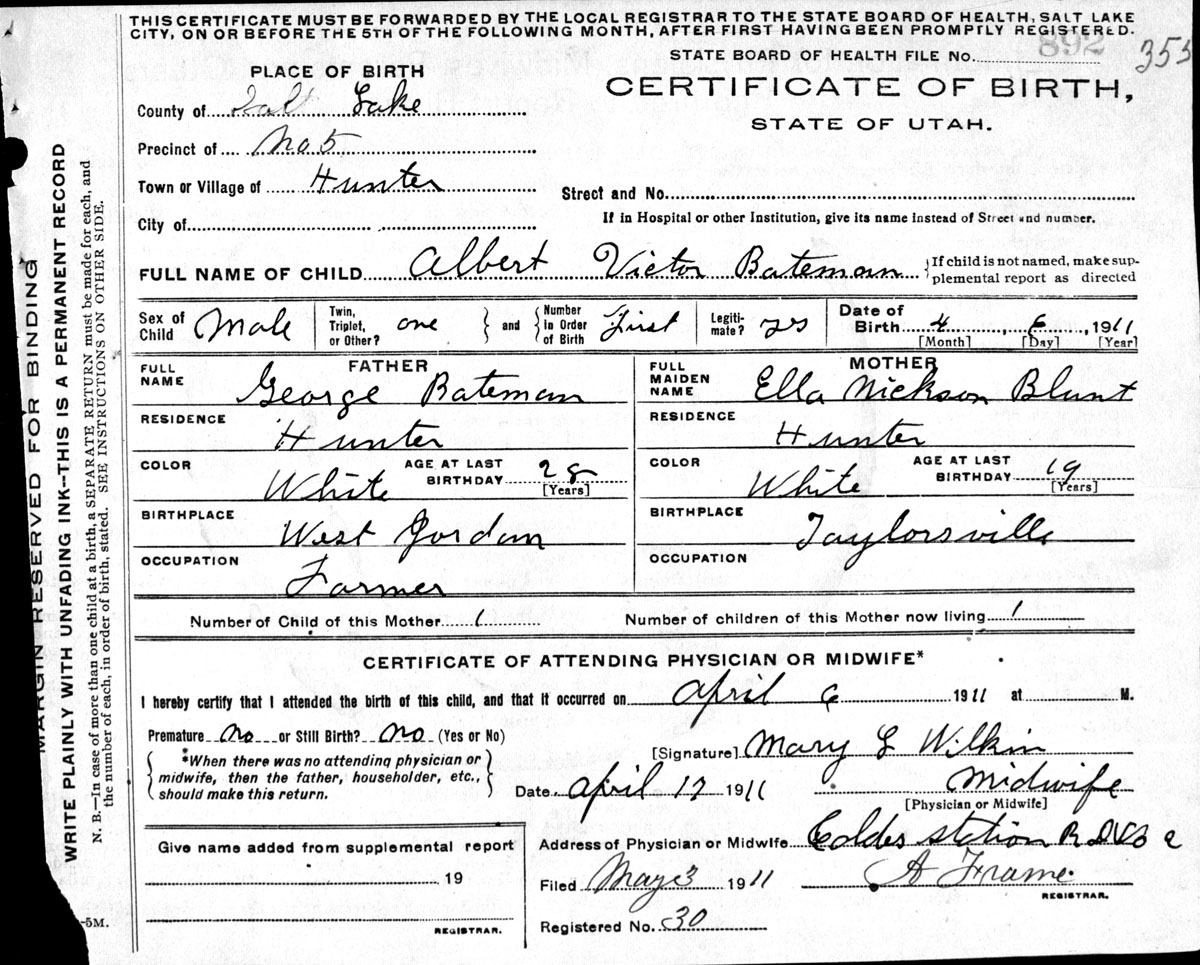 THIS CERTIFICATE MUST BE FORWARDED BY THE LOCAL REGISTRAR TO THE STATE BOARD OF HEALTH, SALT LAKE
CITY, ON OR BEFORE THE 5TH OF THE FOLLOWING MONTH, AFTER FIRST HAVING BEEN PROMPTLY REGISTERED.
STATE BOARD OF HEALTH FILE No. 892
355
PLACE OF BIRTH
CERTIFICATE OF BIRTH,
STATE OF UTAH.
County of Salt Lake
Precinct of No 5
Town or Village of Hunter
Street and No.
City of
If in Hospital or other Institution, give its name instead of Street and number.
FULL NAME OF CHILD Albert Victor Bateman
If child is not named, make sup-
plemental report as directed
Sex of Child Male
Twin, Triplet, or Other? one
and Number in Order of Birth First
Legiti-mate? yes
Date of Birth 4, 6, 1911
[Month] [Day] [Year]
FATHER
FULL NAME George Bateman
RESIDENCE Hunter
COLOR White AGE AT LAST BIRTHDAY 28
[Years]
BIRTHPLACE West Jordan
OCCUPATION Farmer
MOTHER
FULL MAIDEN NAME Ella Nickson Blunt
RESIDENCE Hunter
COLOR White AGE AT LAST BIRTHDAY 19
[Years]
BIRTHPLACE Taylorsville
Number of Child of this Mother 1 Number of children of this Mother now living 1
CERTIFICATE OF ATTENDING PHYSICIAN OR MIDWIFE*
I hereby certify that I attended the birth of this child, and that it occurred on April 6 1911 at M.
Premature No or Still Birth? No (Yes or No)
[Signature] Mary L Wilkin
*When there was no attending physician or
midwife, then the father, householder, etc.,
should make this return.
Date April 17 1911 Midwife
[Physician or Midwife]
Give name added from supplemental report
19
REGISTRAR.
Address of Physician or Midwife station
Filed May 3 1911 A Frame
REGISTRAR.
Registered No. 30
MARGIN RESERVED FOR BINDING
WRITE PLAINLY WITH UNFADING INK--THIS IS A PERMANENT RECORD
N. B.—In case of more than one child at a birth, a SEPARATE RETURN must be made for each, and
the number of each, in order of birth, stated. SEE INSTRUCTIONS ON OTHER SIDE.
-5M.